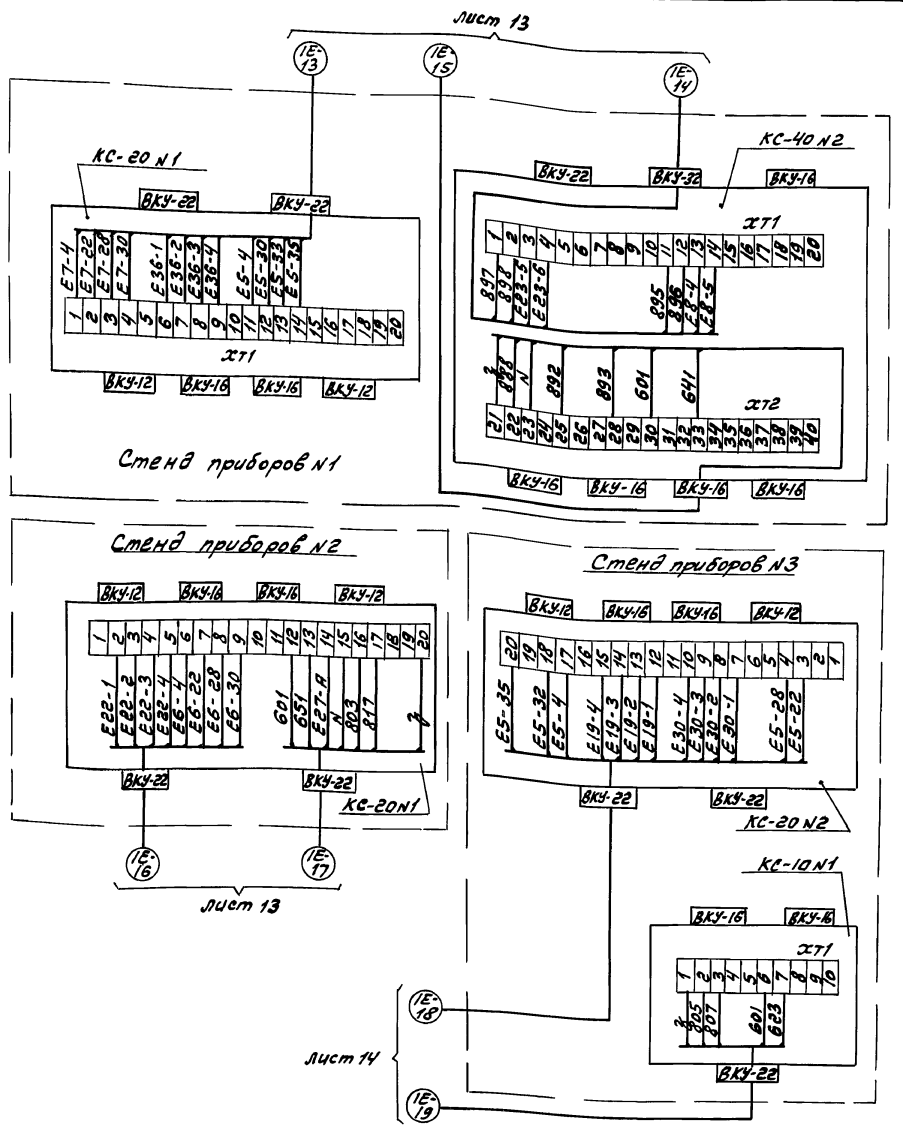 лист 13
1Е-13
1Е-15
1Е-14
КС-20 N1
ВКУ-22 ВКУ-22
Е7-4
Е7-22
Е7-28
Е7-30
Е36-1
Е36-2
Е36-3
Е36-4
Е5-4
Е5-30
Е5-33
Е5-35
1 2 3 4 5 6 7 8 9 10 11 12 13 14 15 16 17 18 19 20
ХТ1
ВКУ-12 ВКУ-16 ВКУ-16 ВКУ-12
Стенд приборов N1
КС-40 N2
ВКУ-22 ВКУ-32 ВКУ-16
ХТ1
1 2 3 4 5 6 7 8 9 10 11 12 13 14 15 16 17 18 19 20
897
898
Е23-5
Е23-6
895
896
Е8-4
Е8-5
888
N
892
893
601
641
ХТ2
21 22 23 24 25 26 27 28 29 30 31 32 33 34 35 36 37 38 39 40
ВКУ-16 ВКУ-16 ВКУ-16 ВКУ-16
Стенд приборов N2
ВКУ-12 ВКУ-16 ВКУ-16 ВКУ-12
1 2 3 4 5 6 7 8 9 10 11 12 13 14 15 16 17 18 19 20
Е22-1
Е22-2
Е22-3
Е22-4
Е6-4
Е6-22
Е6-28
Е6-30
601
651
Е27-А
N
803
817
ВКУ-22 ВКУ-22
КС-20 N1
1Е-16
1Е-17
лист 13
Стенд приборов N3
ВКУ-12 ВКУ-16 ВКУ-16 ВКУ-12
20 19 18 17 16 15 14 13 12 11 10 9 8 7 6 5 4 3 2 1
Е5-35
Е5-32
Е5-4
Е19-4
Е19-3
Е19-2
Е19-1
Е30-4
Е30-3
Е30-2
Е30-1
Е5-28
Е5-22
ВКУ-22 ВКУ-22
КС-20 N2
КС-10 N1
ВКУ-16 ВКУ-16
ХТ1
1 2 3 4 5 6 7 8 9 10
805
807
601
623
ВКУ-22
1Е-18
лист 14
1Е-19